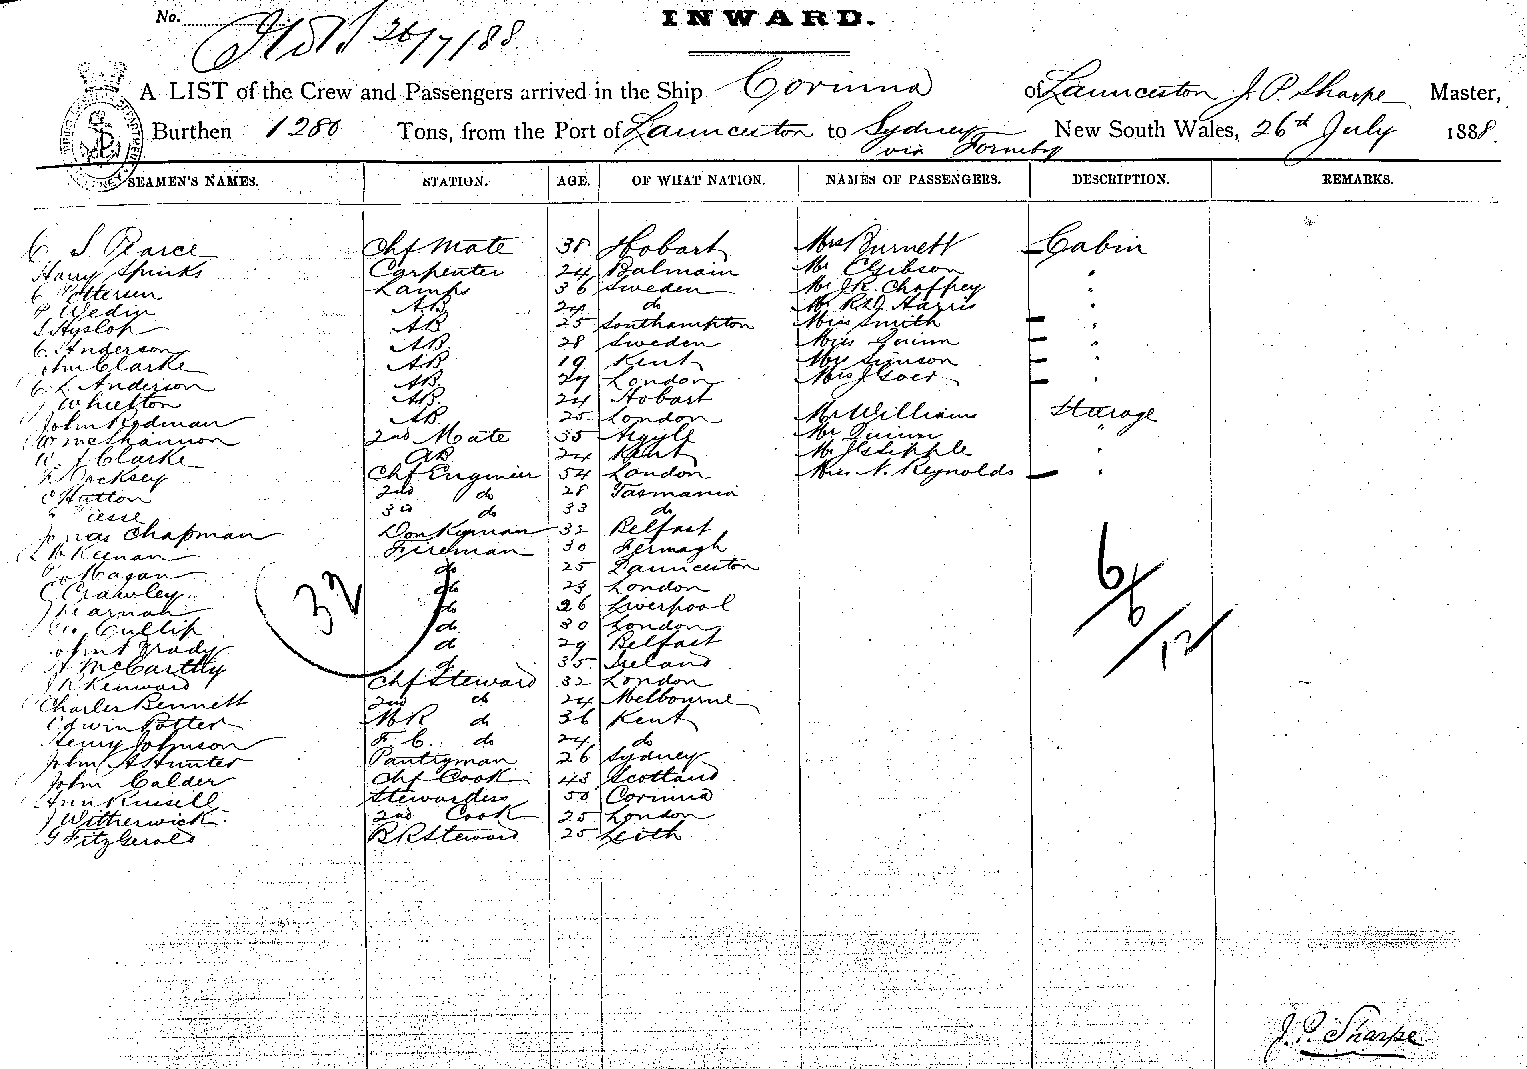 No.
INWARD.
26/7/88
A LIST of the Crew and Passengers arrived in the Ship Corinna of Launceston J. P. Sharpe Master,
Burthen 1280 Tons, from the Port of Launceston to Sydney New South Wales, 26th July 1888.
via Formby
SEAMEN'S NAMES. STATION. AGE. OF WHAT NATION. NAMES OF PASSENGERS. DESCRIPTION. REMARKS.
C S Pearce Chf Mate 38 Hobart Mrs Burnett Cabin
Harry Spinks Carpenter 24 Balmain Mr C Gibson "
C Petersen Lamps 36 Sweden Mr J R Chaffey "
P Wedin AB 24 do Mr R J Harris "
S Hyslop AB 25 Southampton Miss Smith "
C Anderson AB 28 Sweden Miss Quinn "
John Clarke AB 19 Kent Mrs Simson "
C L Anderson AB London Mrs J "
J Whietton AB 24 Hobart
John Redman AB 25 London Mr Williams Starage
W McShannon 2nd Mate 35 Argyle Mr Quinn "
W J Clarke AB 24 Kent Mr J "
Chf Engineer 54 London Mrs N. Reynolds "
C Hatton 2nd do 28 Tasmania
3rd do 33 do
Jonas Chapman Donkeyman 32 Belfast
Keenan Fireman 30 Fermagh
Hagan do 25 Launceston
C Crawley do London
J Kearnan do 26 Liverpool
Cullip do 30 London
John Brady do 29 Belfast
McCarthy do 35 Ireland
J R Kenward Chf Steward 32 London
Charles Bennett 2nd do 24 Melbourne
Edwin Potter M R do 36 Kent
Henry Johnson F. C. do 24 do
John A Hunter Pantryman 26 Sydney
John Calder Chf Cook 43 Scotland
Ann Russell Stewardess 50 Corinna
J Witherwick 2nd Cook 25 London
G FitzGerald B R Steward 25 Leith
32
6
6
12
J. P. Sharpe